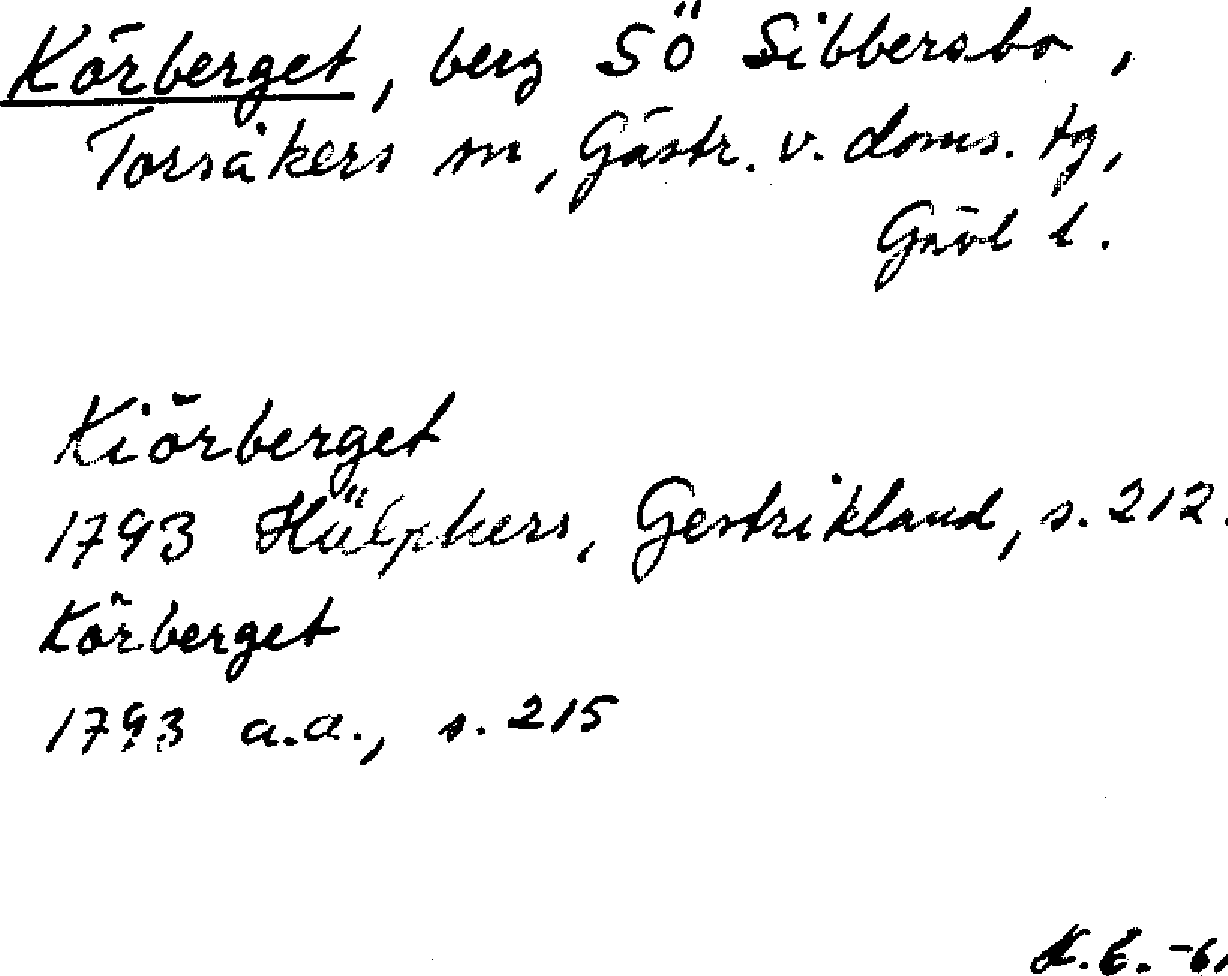 Körberget, berg SÖ Sibbersbo,
Torsåkers sn, Gästr. v. doms. tg,
Gävl l.
Kiörberget
1793 Hülphers, Gestrikland, s. 212.
Körberget
1793 a.a., s. 215
K.E. -6